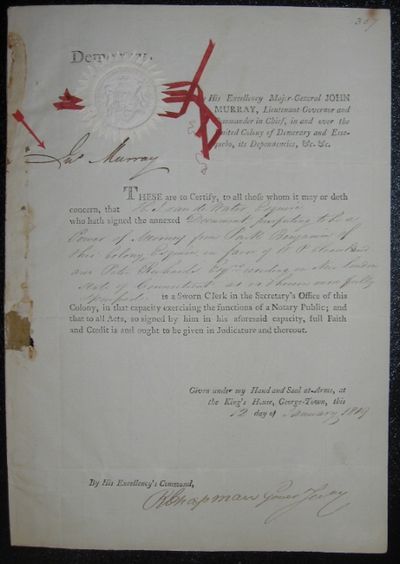 307
Demerary.
By His Excellency Major-General JOHN
MURRAY, Lieutenant Governor and
Commander in Chief, in and over the
United Colony of Demerary and Esse-
quebo, its Dependencies, &c. &c.
Jn° Murray
THESE are to Certify, to all those whom it may or doth
concern, that Esquire
who hath signed the annexed Document, purporting to be a
Power of Attorney from Park Benjamin of
this Colony Esquire in favor of
and Peter Richards Esqre residing in New London
State of Connecticut as is therein more fully
specified is a Sworn Clerk in the Secretary's Office of this
Colony, in that capacity exercising the functions of a Notary Public; and
that to all Acts, so signed by him in his aforesaid capacity, full Faith
and Credit is and ought to be given in Judicature and thereout.
Given under my Hand and Seal at-Arms, at
the King's House, George-Town, this
12 day of January 1819
By His Excellency's Command,
Chapman